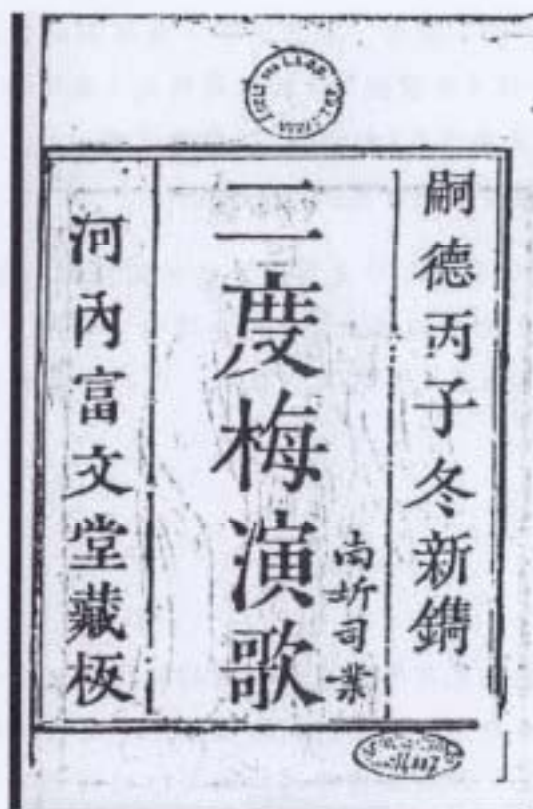 嗣德丙子冬新鐫
二度梅演歌
司業
河內富文堂藏板